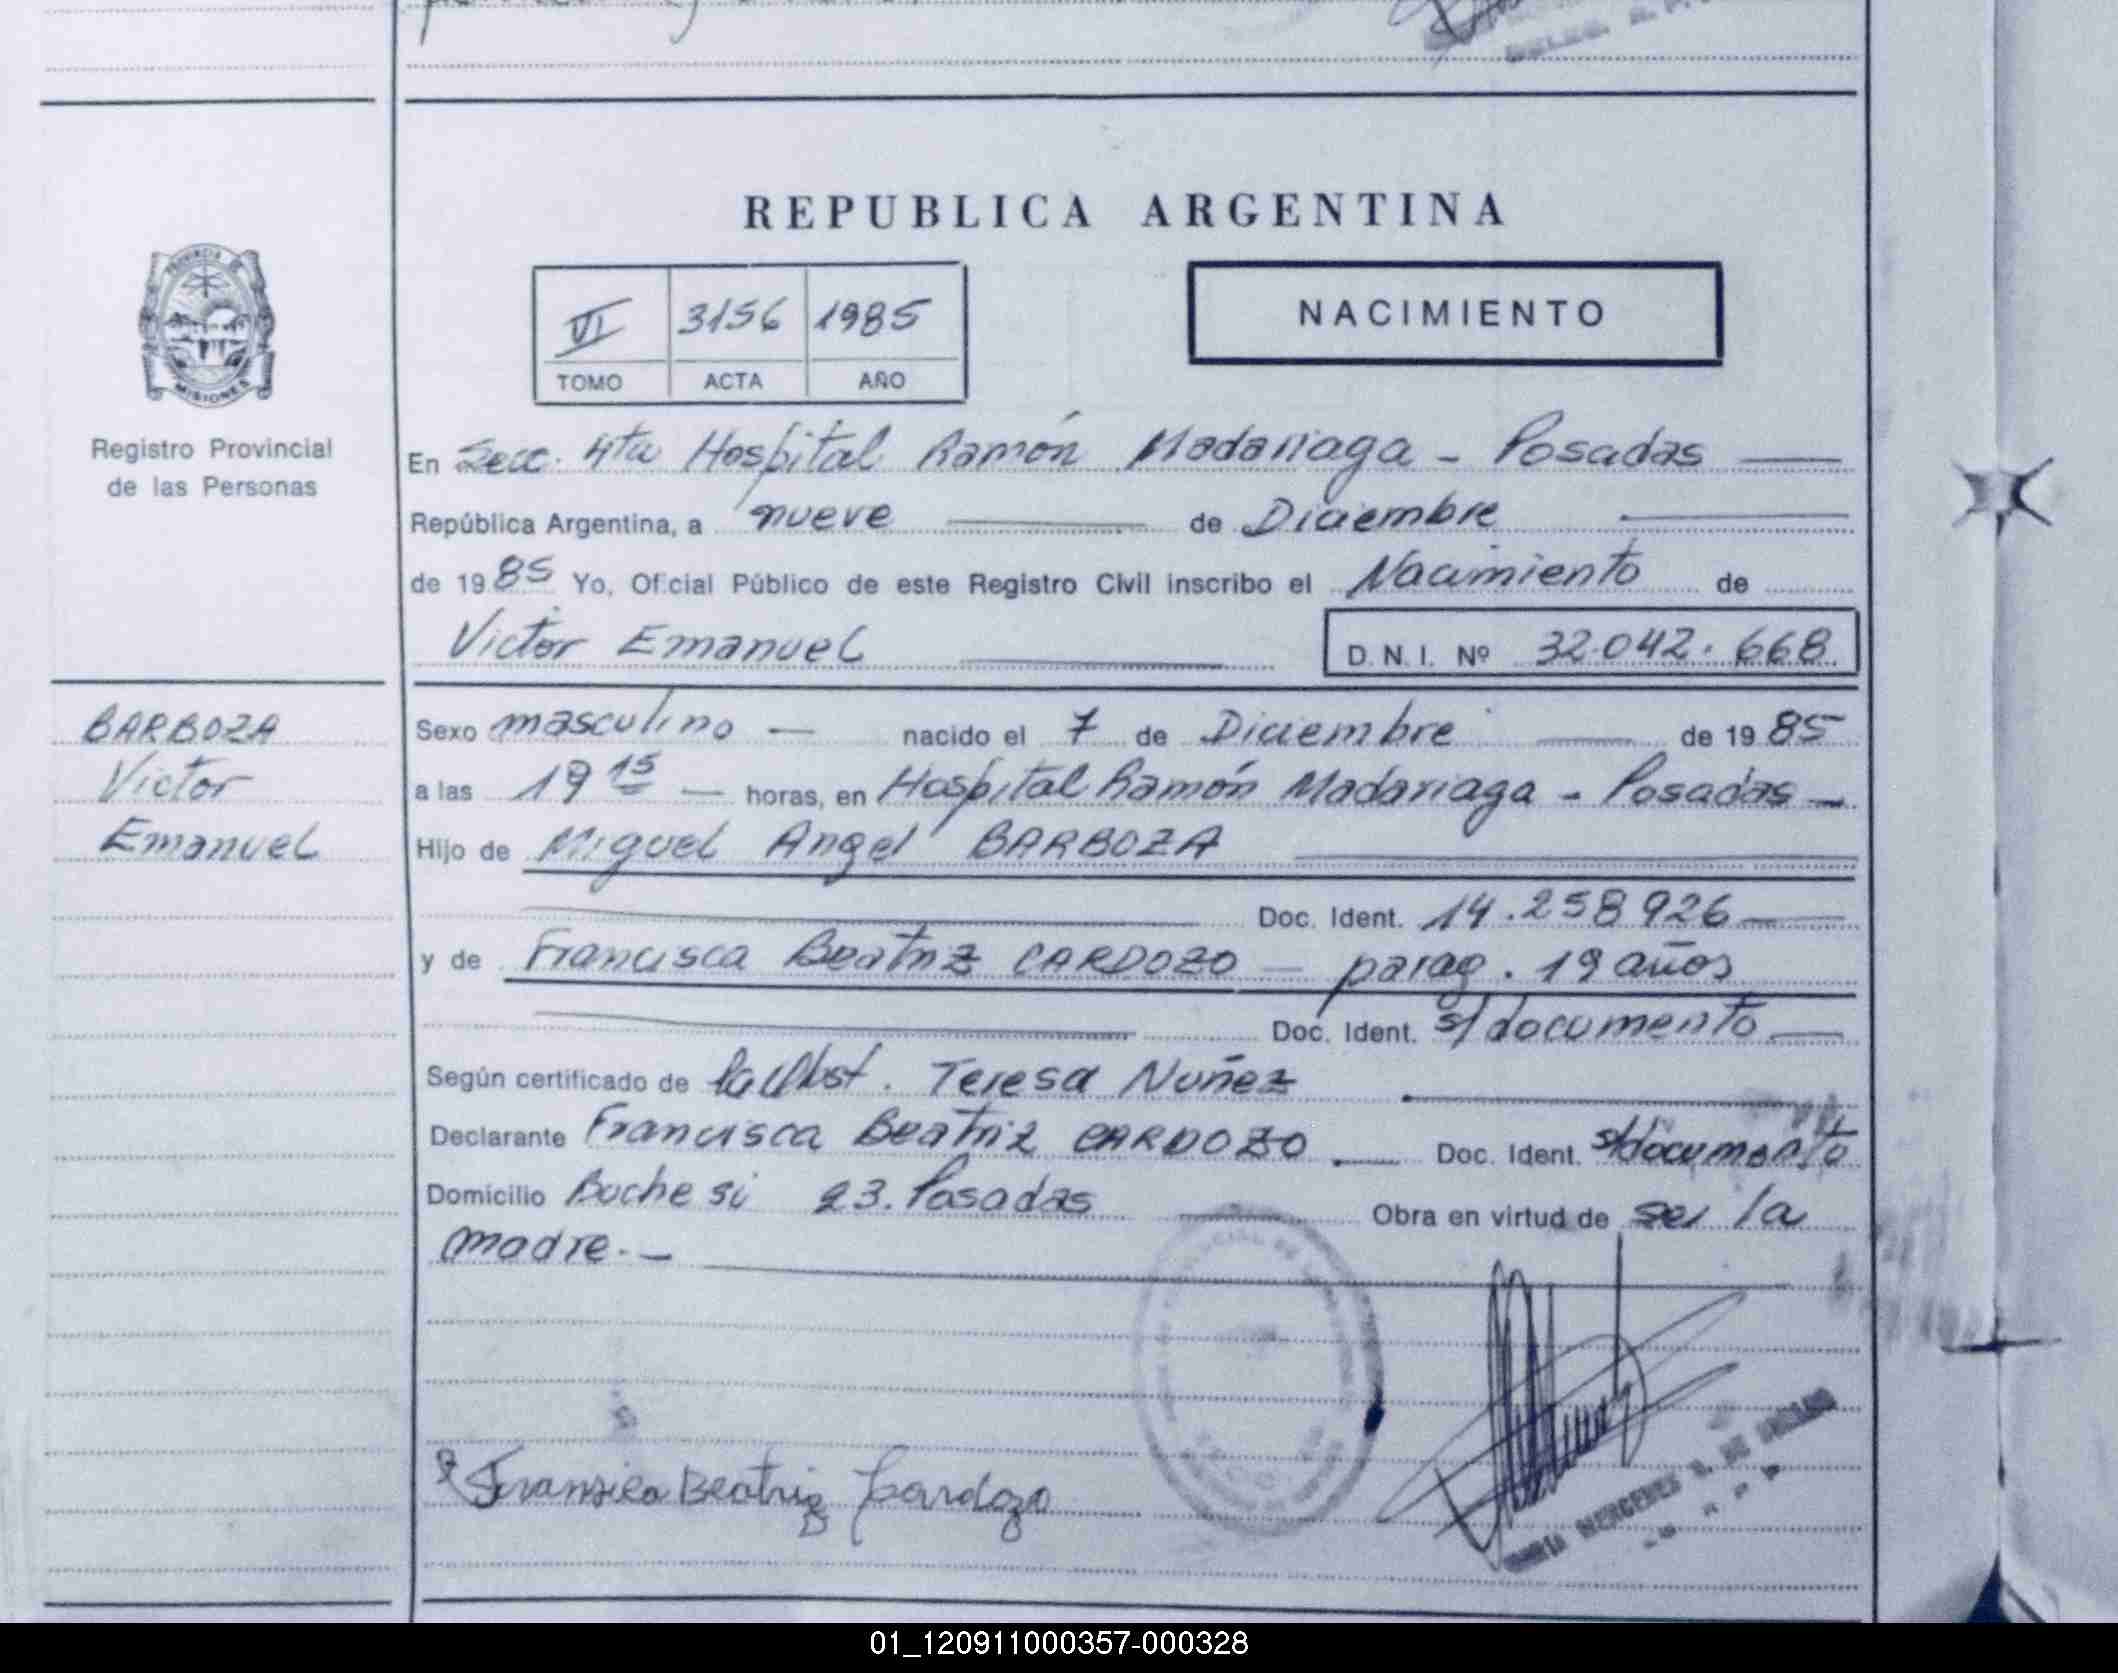 REPUBLICA ARGENTINA
PROVINCIA DE
MISIONES
Registro Provincial
de las Personas
VI 3156 1985
TOMO ACTA AÑO
NACIMIENTO
En Secc. 4ta Hospital Ramón Madariaga - Posadas
República Argentina, a nueve de Diciembre
de 1985 Yo, Oficial Público de este Registro Civil inscribo el Nacimiento de
Victor Emanuel D.N.I. Nº 32.042.668
BARBOZA
Victor
Emanuel
Sexo masculino nacido el 7 de Diciembre de 1985
a las 19 15 horas, en Hospital Ramón Madariaga - Posadas
Hijo de Miguel Angel BARBOZA
Doc. Ident. 14.258926
y de Francisca Beatriz CARDOZO parag. 19 años
Doc. Ident. s/documento
Según certificado de la Obst. Teresa Nuñez
Declarante Francisca Beatriz CARDOZO Doc. Ident. s/documento
Domicilio 23. Posadas Obra en virtud de ser la
madre.
Beatriz Cardozo
MERCEDES
01_120911000357-000328